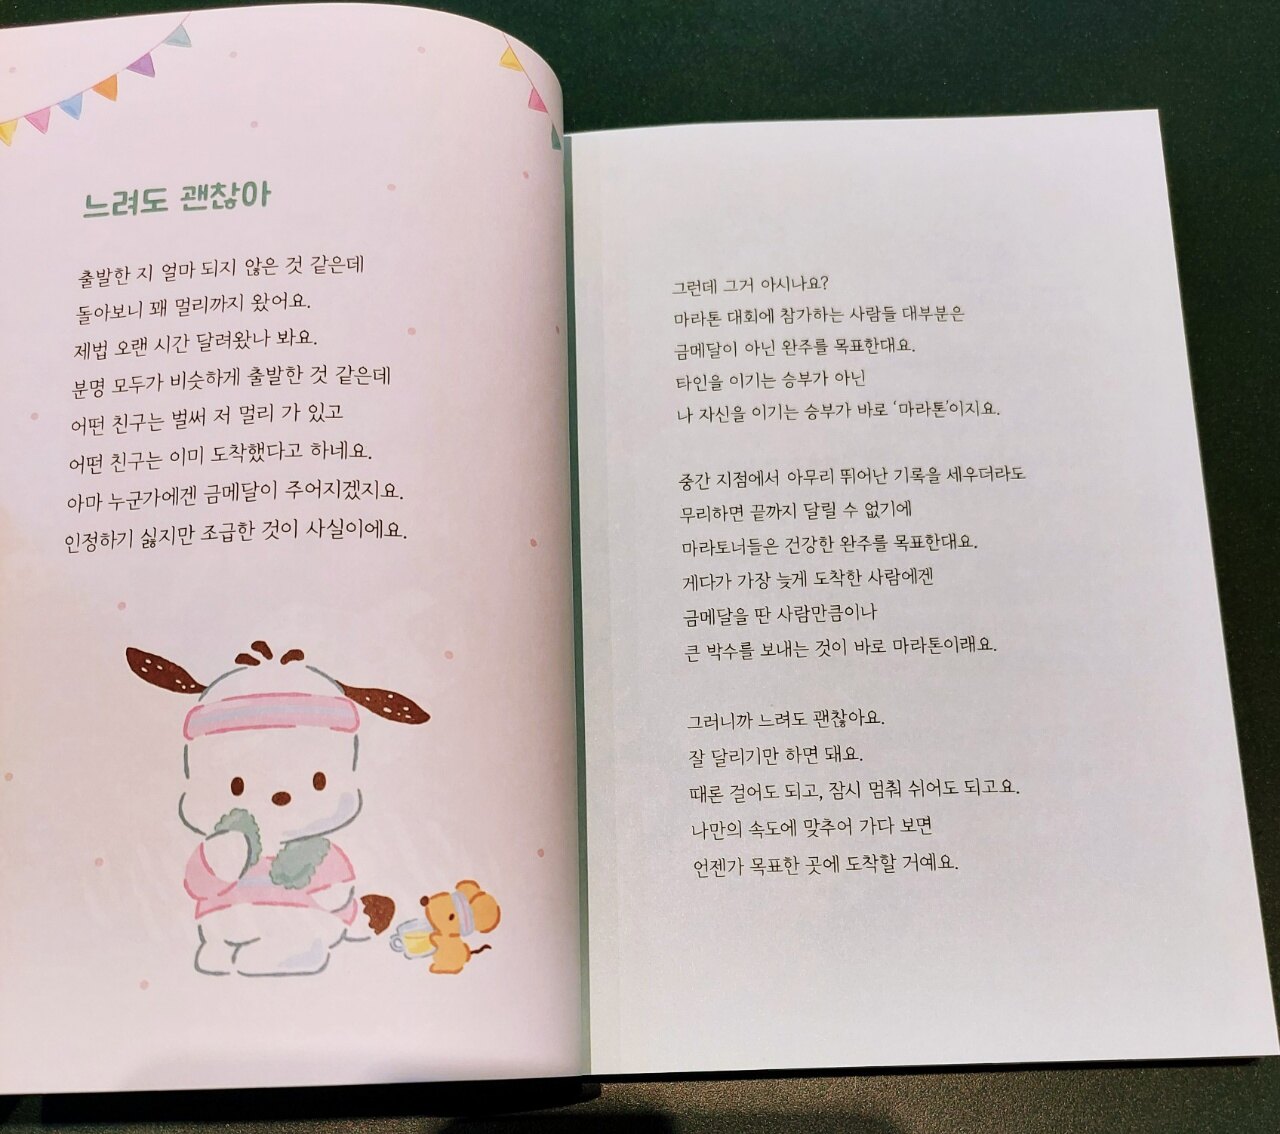 느려도 괜찮아
출발한 지 얼마 되지 않은 것 같은데
돌아보니 꽤 멀리까지 왔어요.
제법 오랜 시간 달려왔나 봐요.
분명 모두가 비슷하게 출발한 것 같은데
어떤 친구는 벌써 저 멀리 가 있고
어떤 친구는 이미 도착했다고 하네요.
아마 누군가에겐 금메달이 주어지겠지요.
인정하기 싫지만 조급한 것이 사실이에요.
그런데 그거 아시나요?
마라톤 대회에 참가하는 사람들 대부분은
금메달이 아닌 완주를 목표한대요.
타인을 이기는 승부가 아닌
나 자신을 이기는 승부가 바로 ‘마라톤’이지요.
중간 지점에서 아무리 뛰어난 기록을 세우더라도
무리하면 끝까지 달릴 수 없기에
마라토너들은 건강한 완주를 목표한대요.
게다가 가장 늦게 도착한 사람에겐
금메달을 딴 사람만큼이나
큰 박수를 보내는 것이 바로 마라톤이래요.
그러니까 느려도 괜찮아요.
잘 달리기만 하면 돼요.
때론 걸어도 되고, 잠시 멈춰 쉬어도 되고요.
나만의 속도에 맞추어 가다 보면
언젠가 목표한 곳에 도착할 거예요.